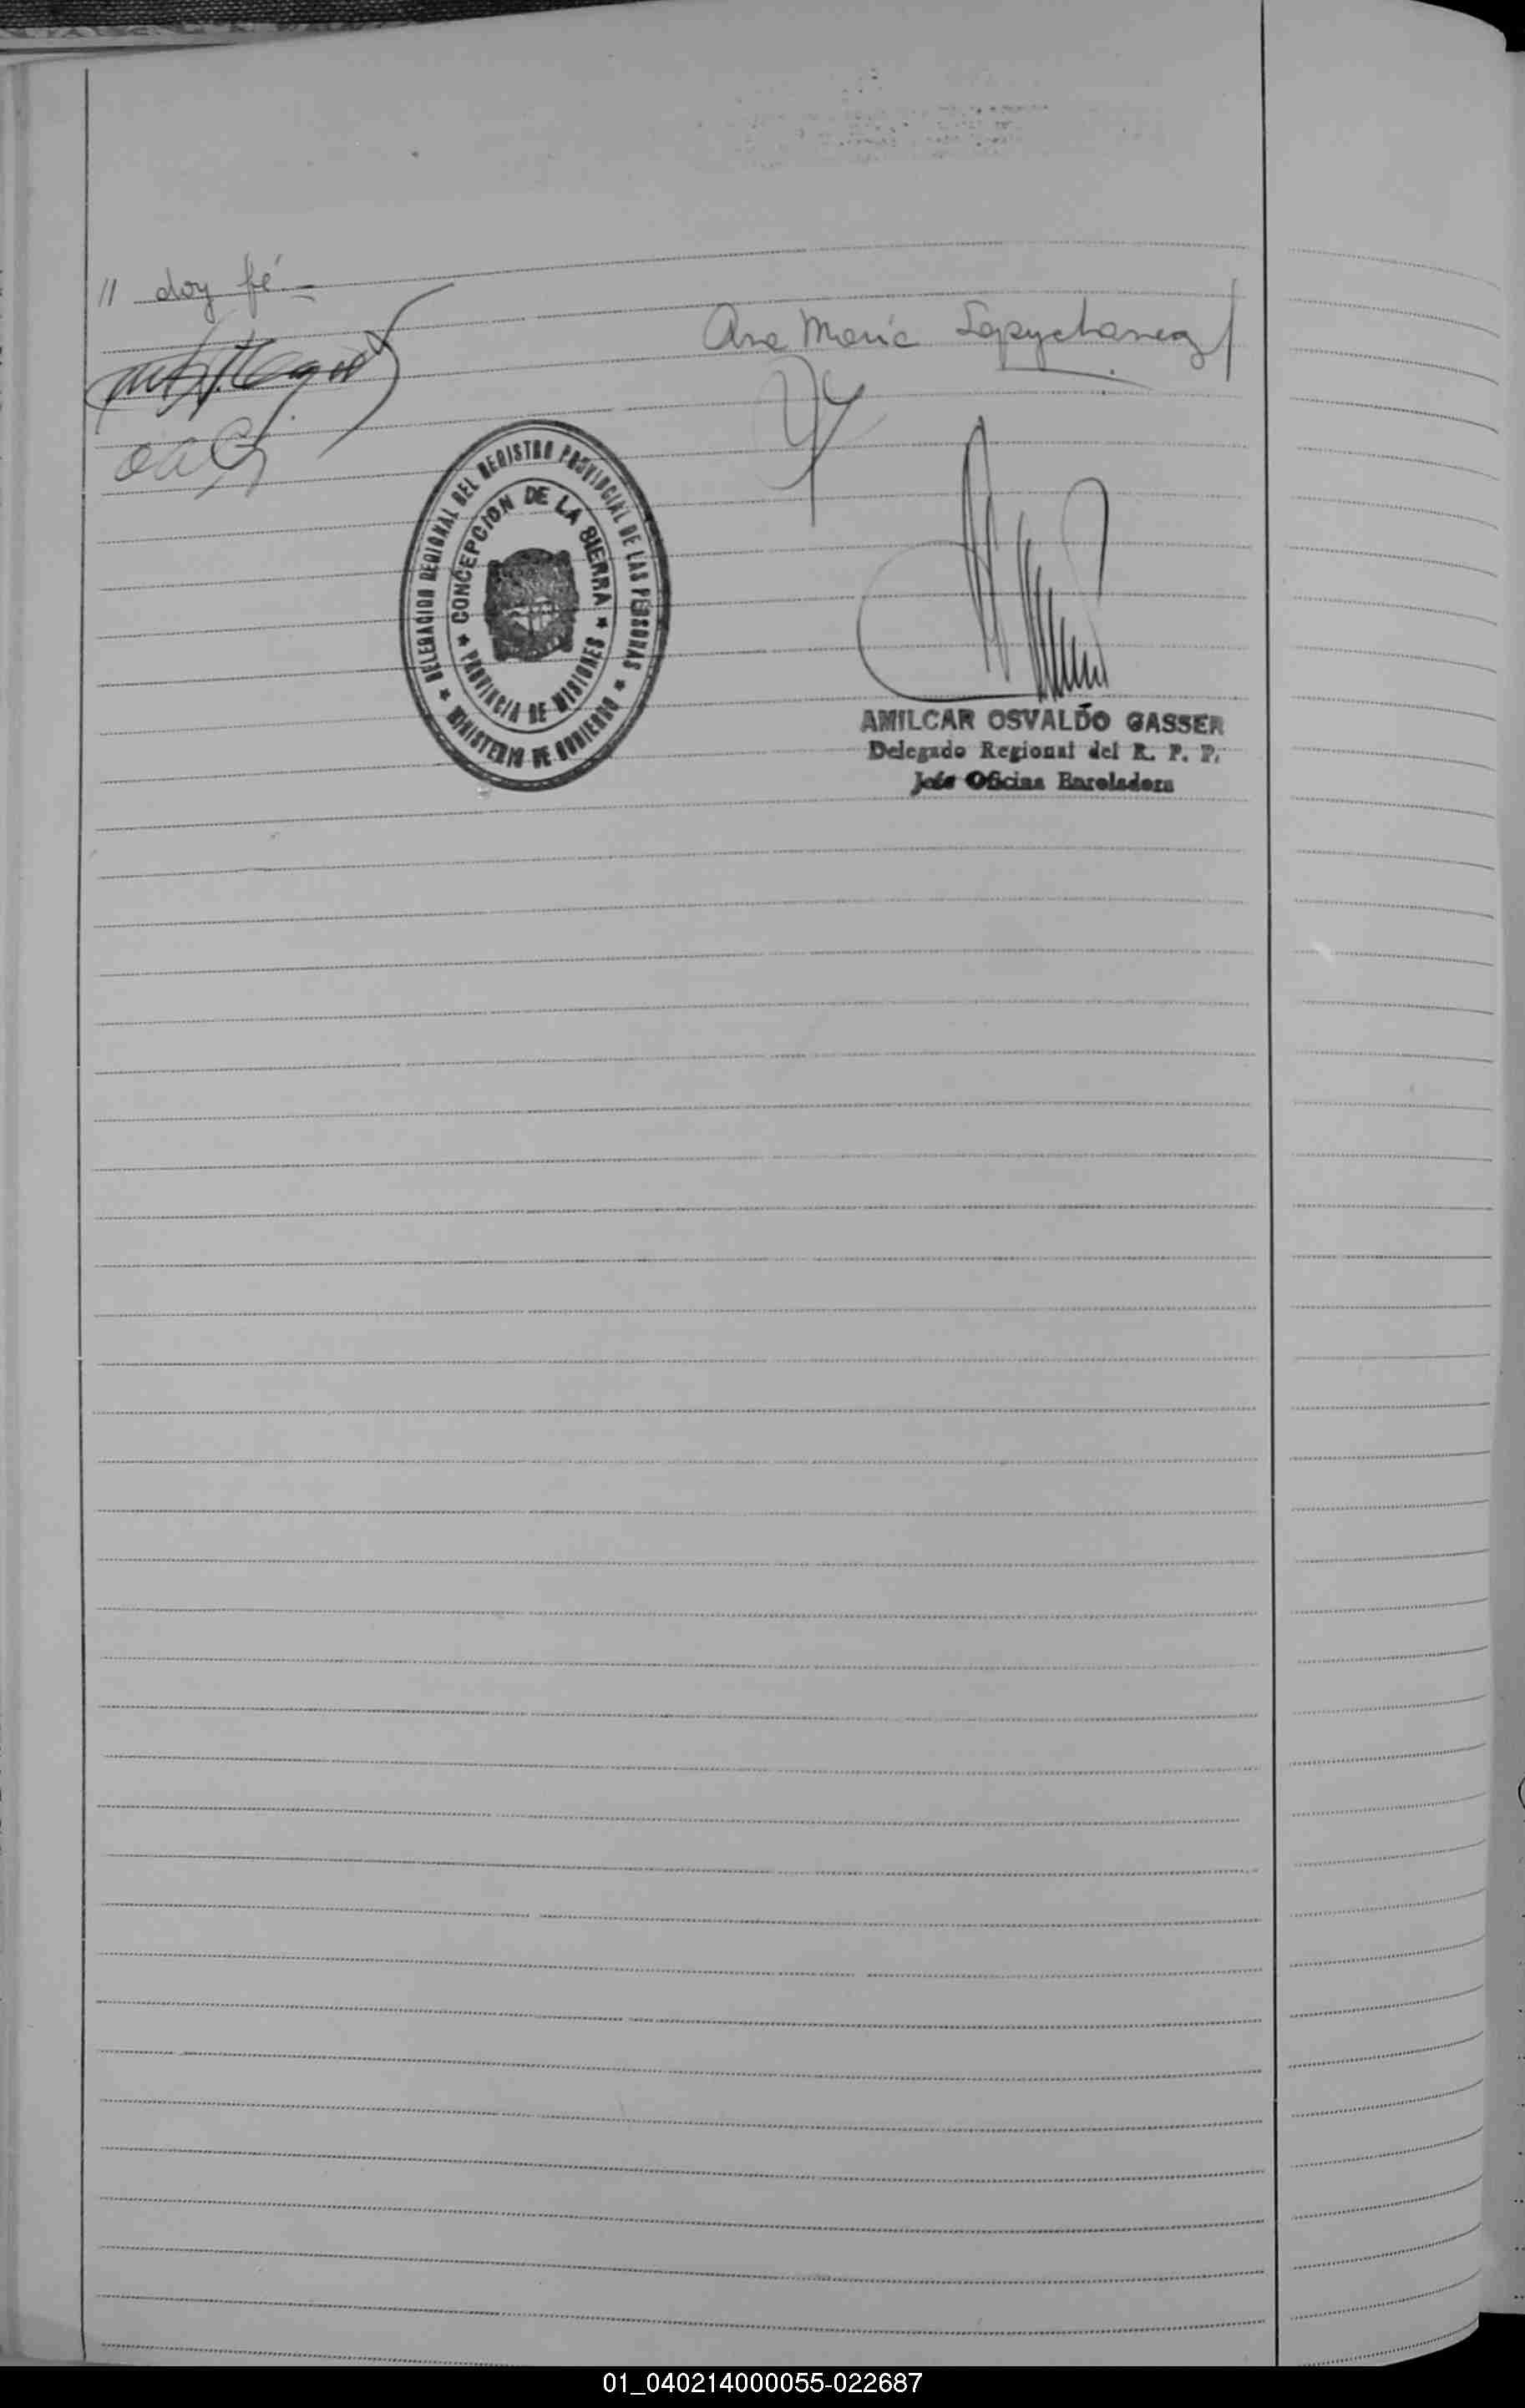 // doy fé.-
Ana María
DELEGACION REGIONAL DEL REGISTRO PROVINCIAL DE LAS PERSONAS
★ MINISTERIO DE GOBIERNO ★
★ CONCEPCION DE LA SIERRA ★
PROVINCIA DE MISIONES
AMILCAR OSVALDO GASSER
Delegado Regional del R. P. P.
Jefe Oficina Enroladora
01_040214000055-022687